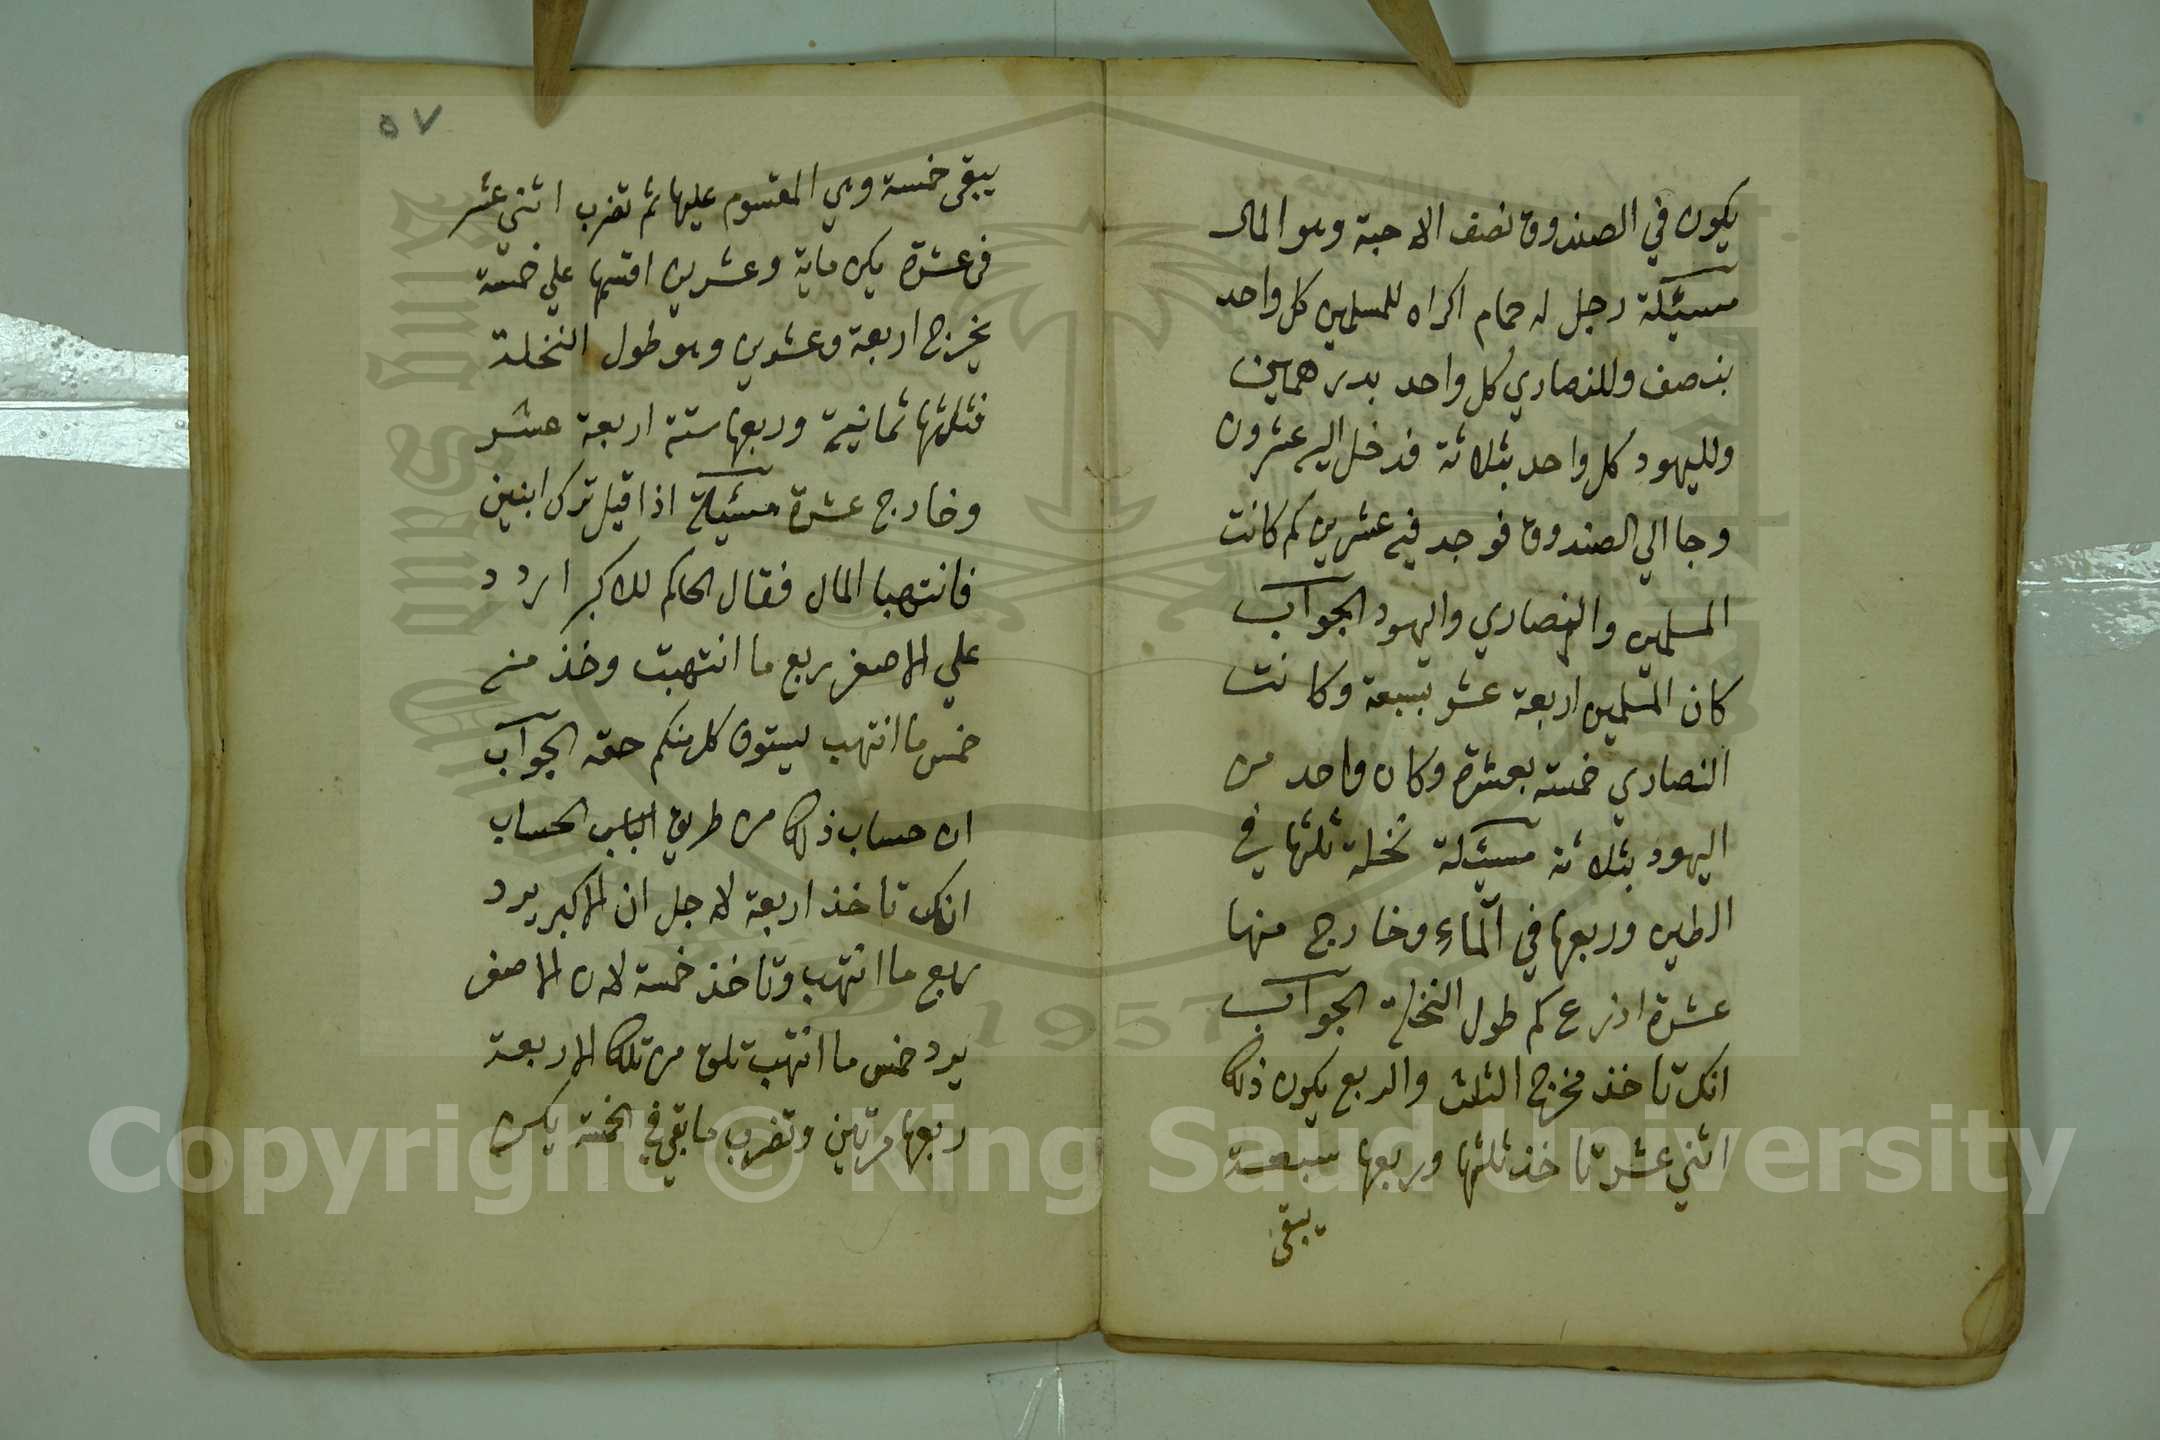 يكون في الصندوق نصف الاحبة وهو المال
مسئيلة رجل له حمام اكراه للمسلمين كل واحد
بنصف وللنصاري كل واحد بدرهمين
ولليهود كل واحد بثلاثة فدخل اليه عشرون
وجا الي الصندوق فوجد فيه عشرين كم كانت
المسلمين والنصاري واليهود الجواب
كان المسلمين اربعة عشر بسبعة وكانت
النصاري خمسة بعشرة وكان واحد من
اليهود بثلاثة مسئيلة نخلة ثلثها في
الطين وربعها في الماء وخارج منها
عشرة اذرع كم طول النخلة الجواب
انك تاخذ مخرج الثلث والربع يكون ذلك
اثني عشر تاخذ ثلثها وربعها سبعة
يبقى
٥٧
يبقى خمسة وهي المقسوم عليها ثم تضرب اثنى عشر
فى عشرة يكن ماية وعشرين اقسمها علي خمسة
يخرج اربعة وعشرين وهو طول النخلة
فثلثها ثمانية وربعها ستة اربعة عشر
وخارج عشرة مسئيلة اذا قيل ترك ابنين
فانتهبا المال فقال الحاكم للاكبر اردد
علي الاصغر ربع ما انتهبت وخذ منه
خمس ما انتهب ليستوي كل منكم حقه الجواب
ان حساب ذلك من طريق الباب الحساب
انك تاخذ اربعة لاجل ان الاكبر يرد
ربع ما انتهب وتاخذ خمسة لان الاصغر
يرد خمس ما انتهب تلق من تلك الاربعة
ربعها مرتين وتضرب ما بقي في الخمسة يكن
Copyright © King Saud University
King Saud University
1957